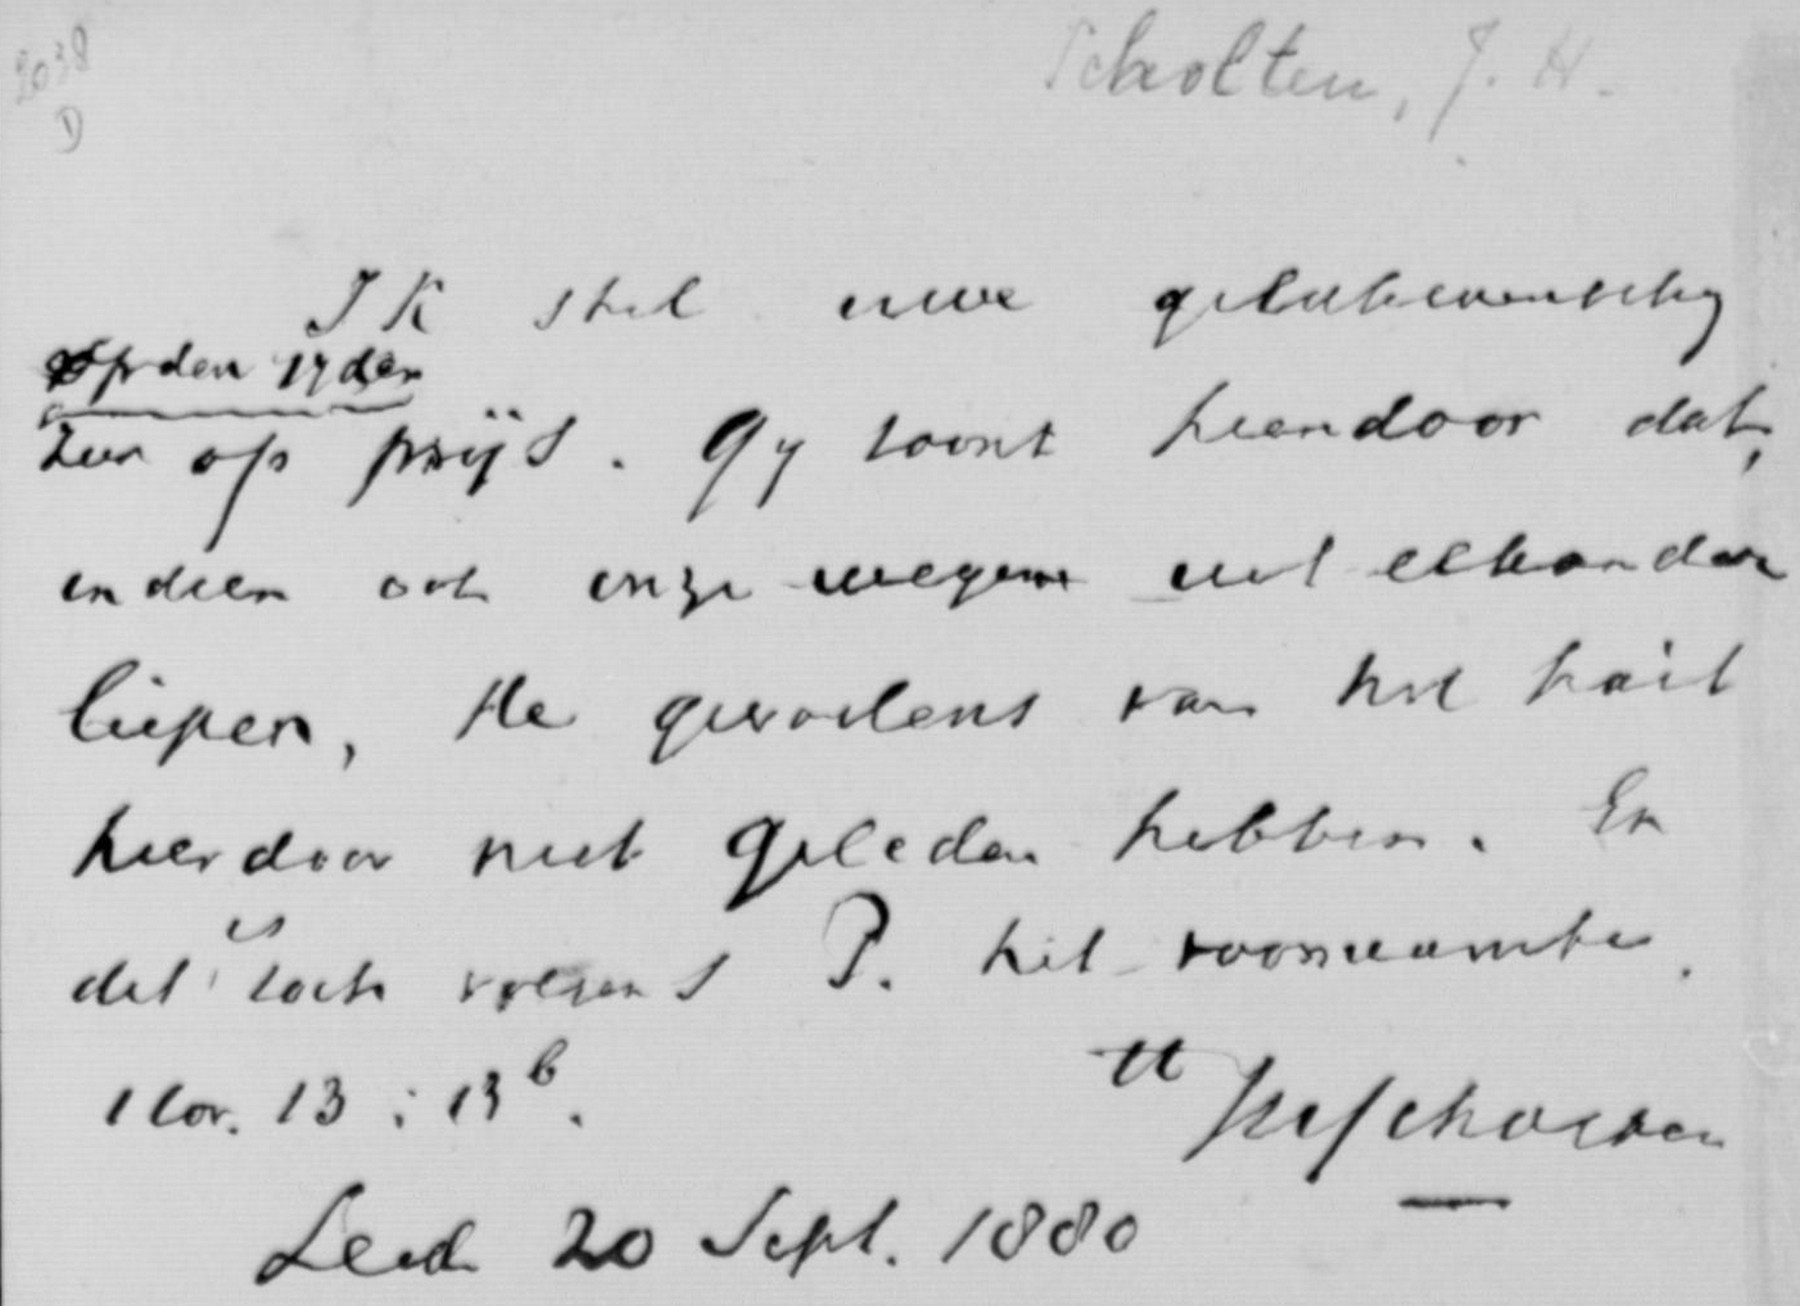 2038
D
Scholten, J. H.
Ik stel uwe gelukwensching
op den 17den
zeer op prijs. Gy toont hierdoor dat,
indien ook onze wegen uit elkander
liepen, de gevoelens van het hart
hierdoor niet geleden hebben. En
dit is toch volgens P. het voornaamste.
1 Cor. 13 : 13b.
tt JHScholten
Leid 20 Sept. 1880